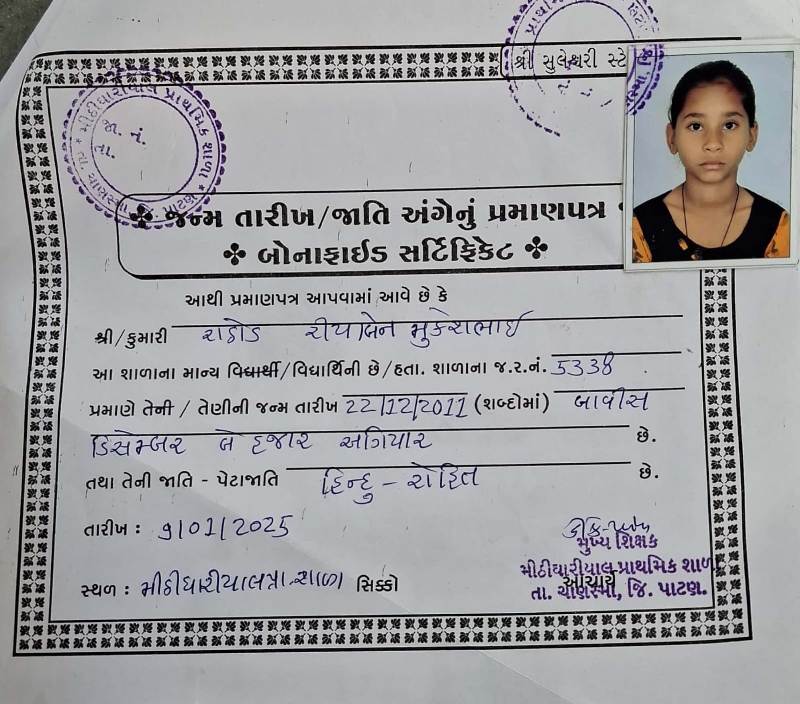 શ્રી સુલેશ્વરી સ્ટે
મીઠીઘારીયાલ પ્રાથમિક શાળા
જા. નં.
તા.
જન્મ તારીખ/જાતિ અંગેનું પ્રમાણપત્ર
બોનાફાઈડ સર્ટિફિકેટ
આથી પ્રમાણપત્ર આપવામાં આવે છે કે
શ્રી/કુમારી રાઠોડ રીયાબેન મુકેશભાઈ
આ શાળાના માન્ય વિદ્યાર્થી/વિદ્યાર્થિની છે/હતા. શાળાના જ.ર.નં. 5338.
પ્રમાણે તેની / તેણીની જન્મ તારીખ 22/12/2011 (શબ્દોમાં) બાવીસ
ડિસેમ્બર બે હજાર અગિયાર છે.
તથા તેની જાતિ - પેટાજાતિ હિન્દુ - રોહિત છે.
તારીખ : 9/01/2025
મુખ્ય શિક્ષક
સ્થળ : મીઠીઘારીયાલ પ્રા. શાળા સિક્કો
આચાર્ય
મીઠીઘારીયાલ પ્રાથમિક શાળ
તા. ચાણસ્મા, જિ. પાટણ.